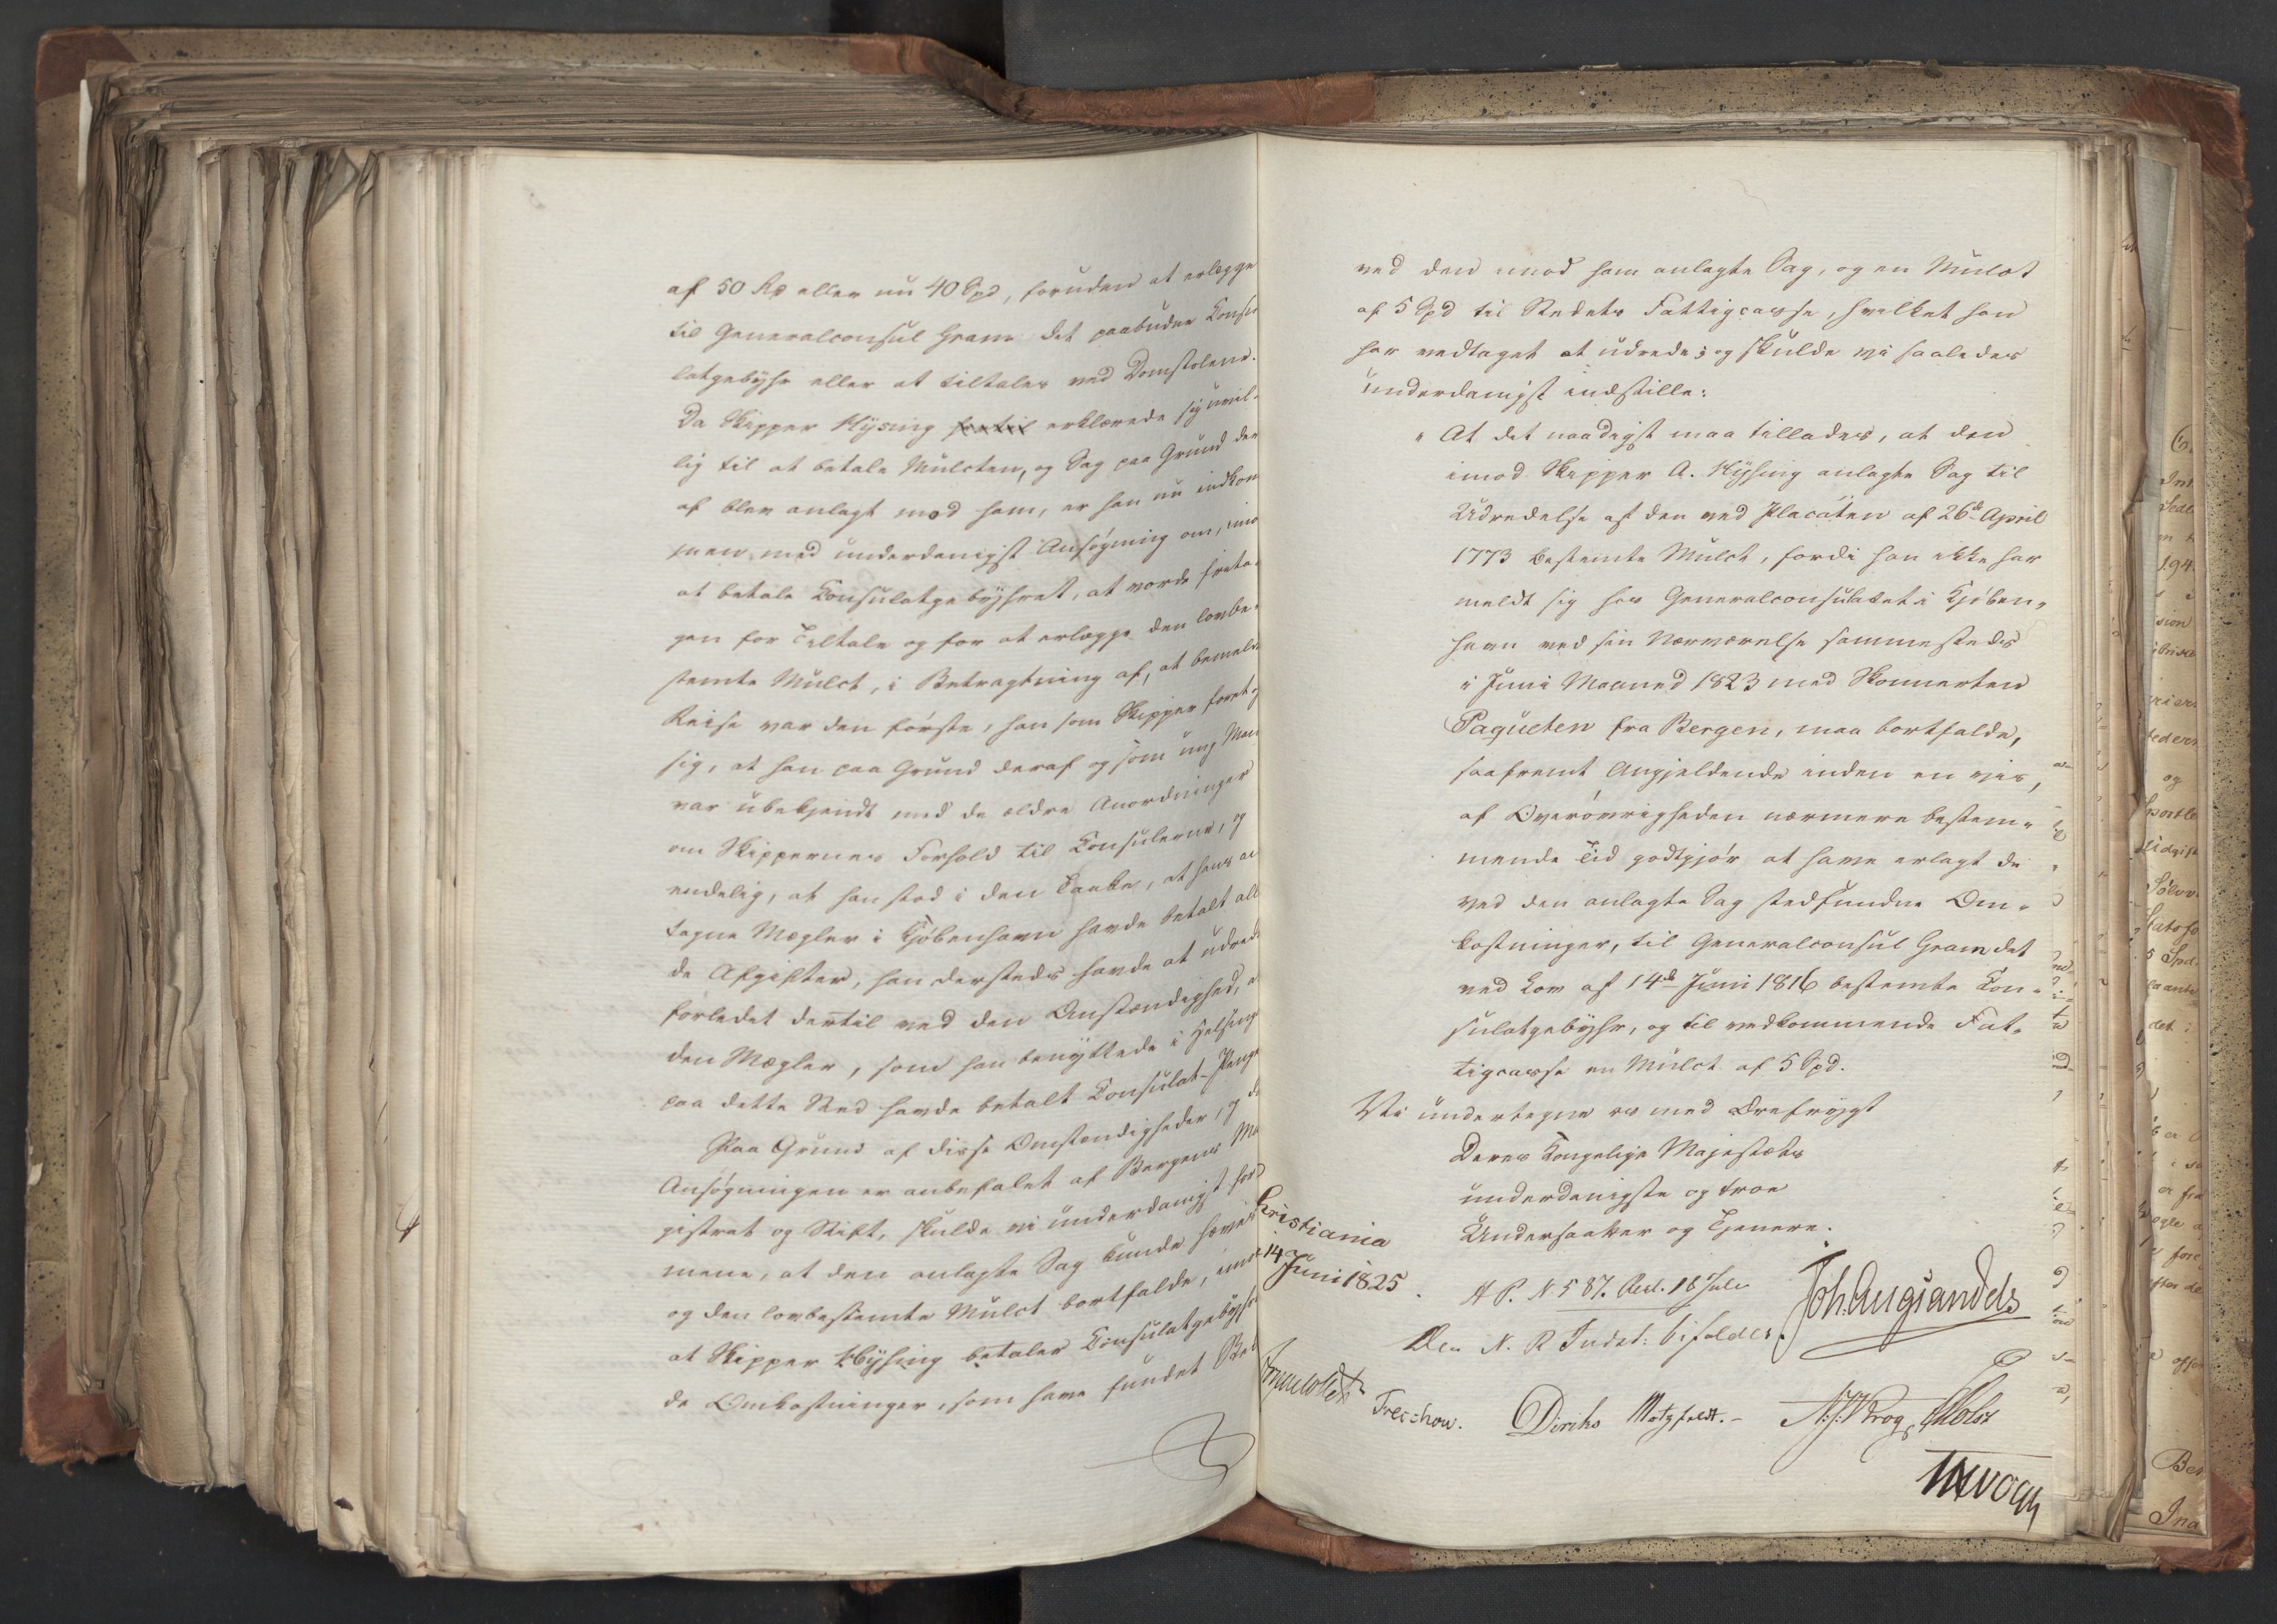 af 50 Rd eller nu 40 Spd, foruden at erlægge
til Generalconsul Gram det paabudne Consu
latgebyhr eller at tiltales ved Domstolene.
Da Skipper Hysing erklærede sig uvil-
lig til at betale Mulcten, og Sag paa Grund der
af blev anlagt mod ham, er han nu indkom
men med underdanigst Ansøgning om, imo
at betale Consulatgebyhret, at vorde frita-
gen for Tiltale og for at erlægge den lovbe-
stemte Mulct, i Betragtning af, at bemeldte
Reise var den første, han som Skipper foretog
sig, at han paa Grund deraf og som ung Man
var ubekjendt med de ældre Anordninger
om Skippernes Forhold til Consulerne, og
endelig, at han stod i den Tanke, at hans an
tagne Mægler i Kjøbenhavn havde betalt alle
de Afgifter, han dersteds havde at udrede
forledet dertil ved den Omstændighed, a
den Mægler, som han benyttede i Helsing
paa dette Sted havde betalt Consulat-Penge
Paa Grund af disse Omstændigheder, og da
Ansøgningen er anbefalet af Bergens Ma
gistrat og Stift, skulde vi underdanigst for
mene, at den anlagte Sag kunde hæves
og den lovbestemte Mulct bortfalde, imod
at Skipper Hysing betaler Consulatgebyhr
de Omkostninger, som have fundet Sted
ved den imod ham anlagte Sag, og en Mulct
af 5 Spd til Stedets Fattigcasse, hvilket han
har vedtaget at udrede; og skulde vi saaledes
underdanigst indstille:
" At det naadigst maa tillades, at den
imod Skipper A. Hysing anlagte Sag til
Udredelse af den ved Placaten af 26de April
1773 bestemte Mulct, fordi han ikke har
meldt sig hos Generalconsulatet i Kjøben-
havn ved sin Nærværelse sammesteds
i Juni Maaned 1823 med Skonnerten
Paqueten fra Bergen, maa bortfalde,
saafremt Angjeldende inden en vis,
af Overøvrigheden nærmere bestem-
mende Tid godtgjør at have erlagt de
ved den anlagte Sag stedfundne Om-
kostninger, til Generalconsul Gram det
ved Lov af 14de Juni 1816 bestemte Con-
sulatgebyhr, og til vedkommende Fat-
tigcasse en Mulct af 5 Spd.
Vi undertegne os med Ærefrygt
Deres Kongelige Majestæts
underdanigste og troe
Undersaatter og Tjenere.
Christiania
14
Juni 1825.
A P. N 587. Resl. 16 Juli
Den N. R Indst: bifaldes.
Joh. Aug Sandels
Treschow. Diriks Motzfeldt.- Krog Holst
Vogt